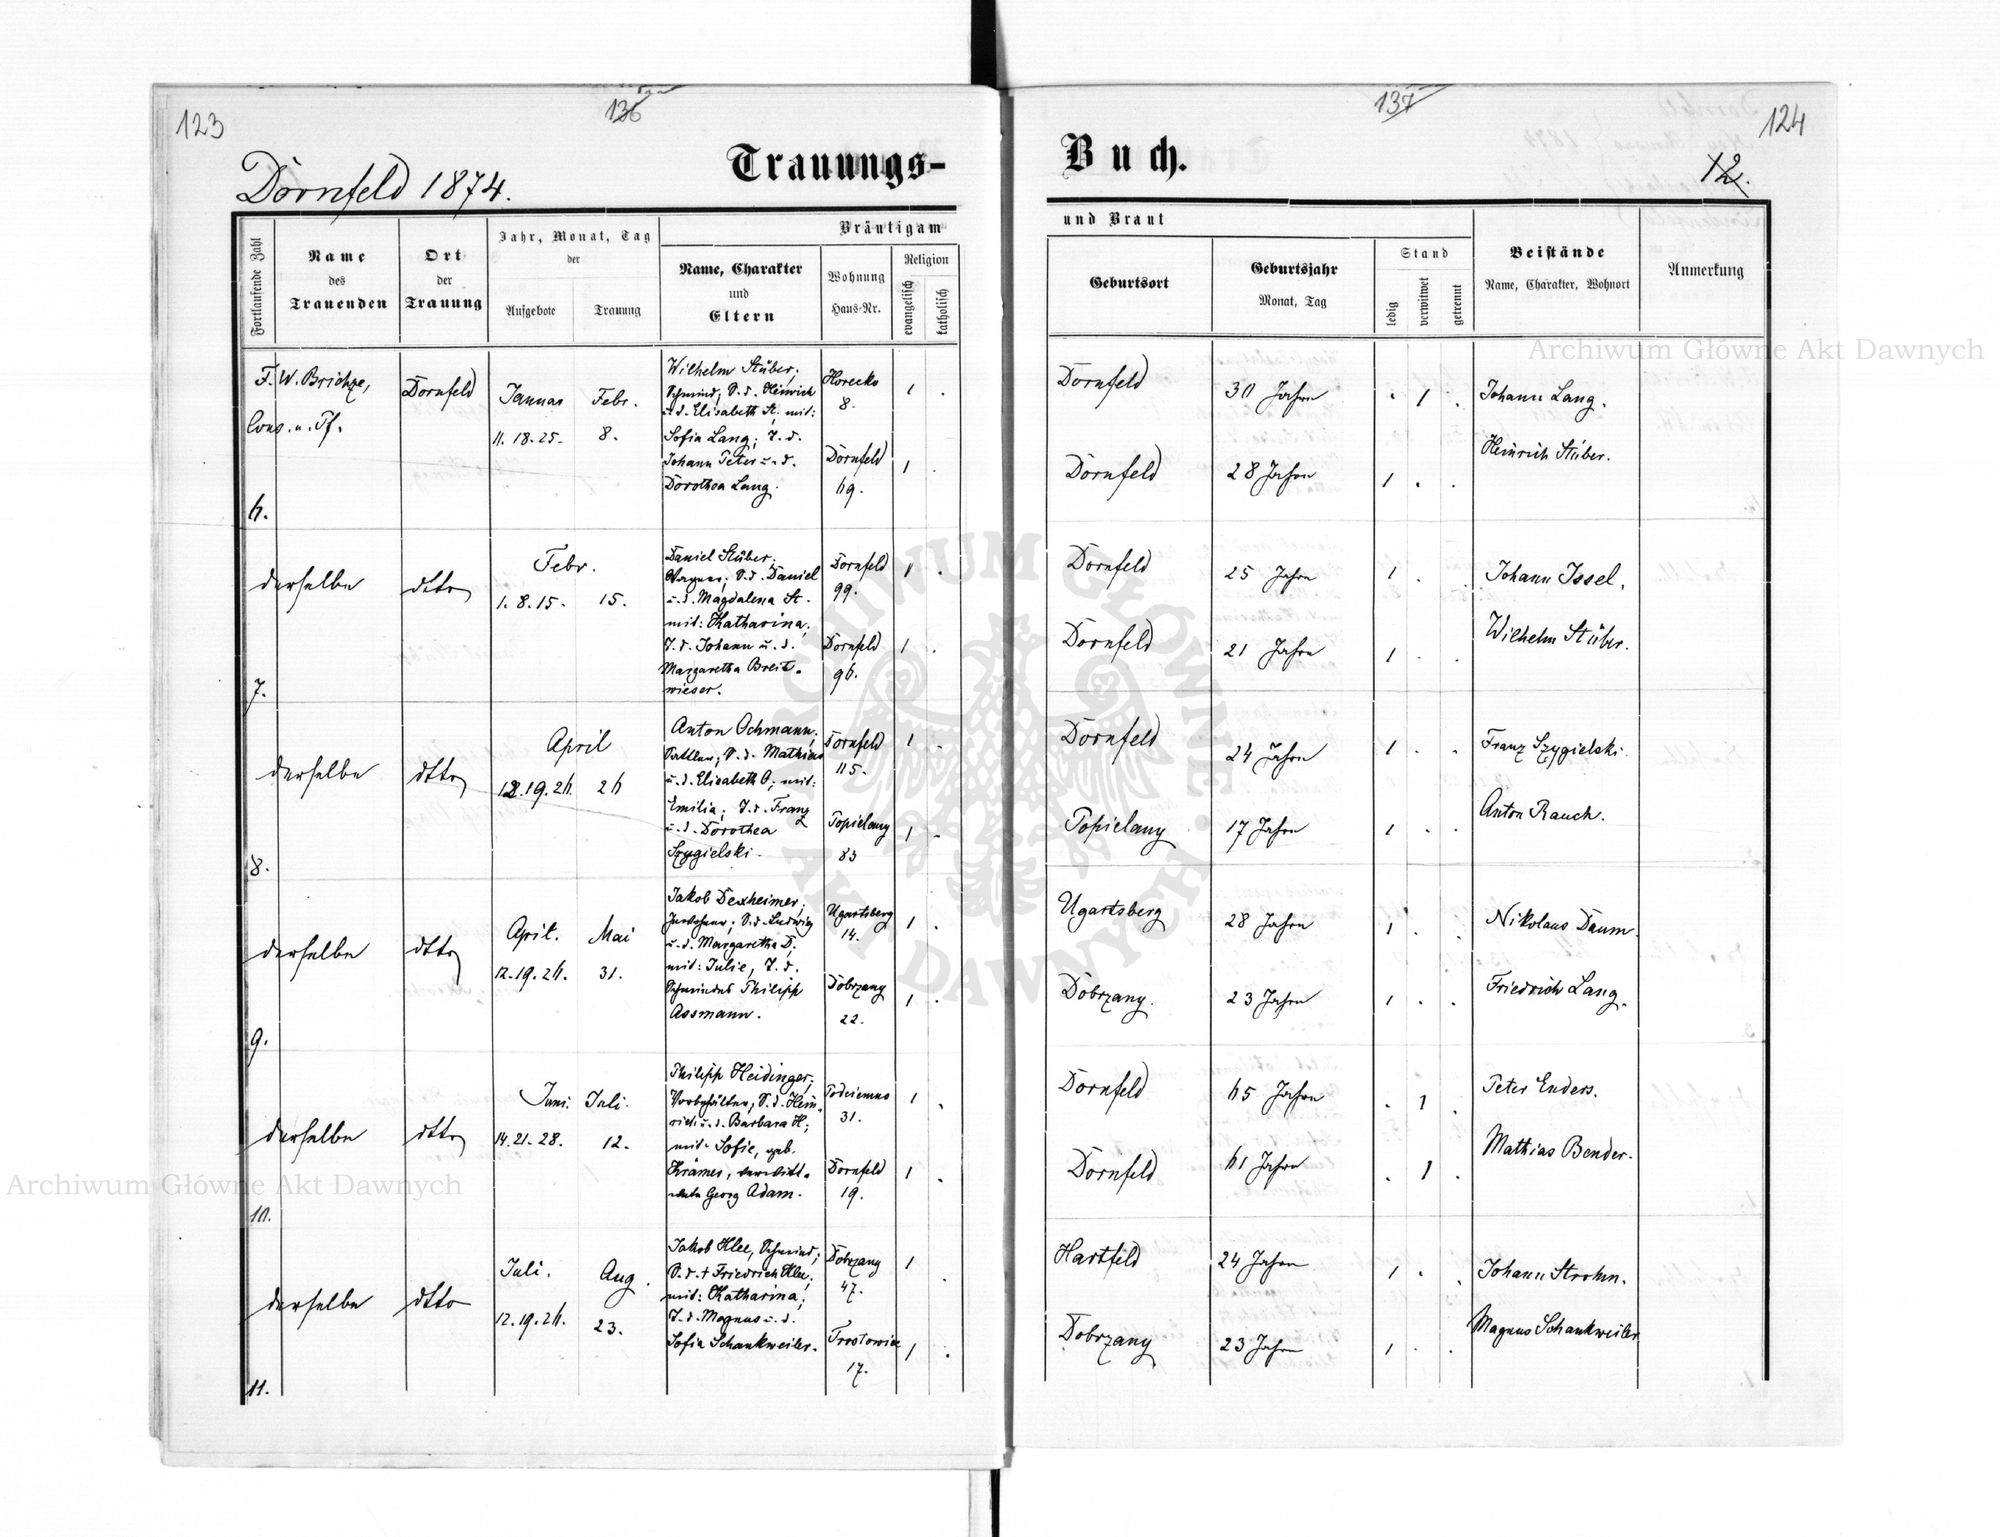 123
136
137
124
Trauungs-
Buch.
Dornfeld 1874.
12.
Fortlaufende Zahl
Name
des
Trauenden
Ort
der
Trauung
Jahr, Monat, Tag
der
Aufgebote
Trauung
Bräutigam
Name, Charakter
und
Eltern
Wohnung
Haus-Nr.
Religion
evangelisch
katholisch
und Braut
Geburtsort
Geburtsjahr
Monat, Tag
Stand
ledig
verwitwet
getrennt
Beistände
Name, Charakter, Wohnort
Anmerkung
6.
F. W. Brichze,
Cons. u. Pf.
Dornfeld
Januar
11. 18. 25.
Febr.
8.
Wilhelm Stüber;
Schmied; S. d. Heinrich
u. d. Elisabeth St. mit:
Sofia Lang; T. d.
Johann Peter u. d.
Dorothea Lang.
Horecko
8.
Dornfeld
69.
1 .
1 .
Dornfeld
Dornfeld
30 Jahre
28 Jahre
. 1 .
1 . .
Johann Lang.
Heinrich Stüber.
7.
derselbe
dtto
Febr.
1. 8. 15.
15.
Daniel Stüber;
Wagner; S. d. Daniel
u. d. Magdalena St.
mit: Katharina;
T. d. Johann u. d.
Margaretha Breit-
wieser.
Dornfeld
99.
Dornfeld
96.
1 .
1 .
Dornfeld
Dornfeld
25 Jahre
21 Jahre
1 . .
1 . .
Johann Issel.
Wilhelm Stüber.
8.
derselbe
dtto
April
12. 19. 26.
26
Anton Ochmann;
Sattler; S. d. Mathias
u. d. Elisabeth O; mit:
Emilia; T. d. Franz
u. d. Dorothea
Szygielski.
Dornfeld
115.
Popielany
83
1 .
1 .
Dornfeld
Popielany
24 Jahre
17 Jahre
1 . .
1 . .
Franz Szygielski.
Anton Rauch.
9.
derselbe
dtto
April.
12. 19. 26.
Mai
31.
Jakob Dexheimer;
S. d. Ludwig
u. d. Margaretha D;
mit: Julie, T. d.
Schmiedes Philipp
Assmann.
Ugartsberg
14.
Dobrzany
22.
1 .
1 .
Ugartsberg
Dobrzany.
28 Jahre
23 Jahre
1 . .
1 . .
Nikolaus Daum.
Friedrich Lang.
10.
derselbe
dtto
Juni.
14. 21. 28.
Juli.
12.
Philipp Heidinger;
S. d. Hein-
rich u. d. Barbara H;
mit Sofie, geb.
Krämer, verwitt-
wete Georg Adam.
Podciemno
31.
Dornfeld
19.
1 .
1 .
Dornfeld
Dornfeld
65 Jahre
61 Jahre
. 1 .
. 1 .
Peter Enders.
Mathias Bender.
11.
derselbe
dtto
Juli.
12. 19. 26.
Aug.
23.
Jakob Klee, Schmied;
S. d. † Friedrich Klee;
mit: Katharina;
T. d. Magnus u. d.
Sofia Schankweiler.
Dobrzany
47.
Trostowice
17.
1 .
1 .
Hartfeld
Dobrzany
24 Jahre
23 Jahre
1 . .
1 . .
Johann Strohm.
Magnus Schankweiler
Archiwum Główne Akt Dawnych
Archiwum Główne Akt Dawnych
ARCHIWUM GŁÓWNE
AKT DAWNYCH